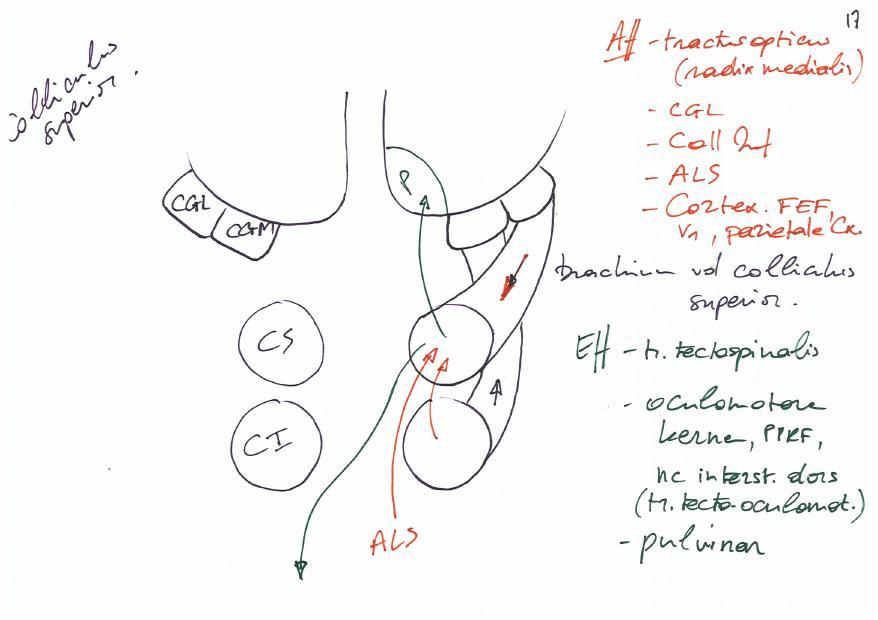 17
Colliculus
superior.
Aff - tractus opticus
(radix medialis)
- CGL
- Coll Inf
- ALS
- Cortex: FEF,
V1, parietale Cx.
brachium vd colliculus
superior.
Eff - tr. tectospinalis
- oculomotore
kerne, PPRF,
nc interst. dors
(tr. tecto-oculomot.)
- pulvinar
P
CGL
CGM
CS
CI
ALS